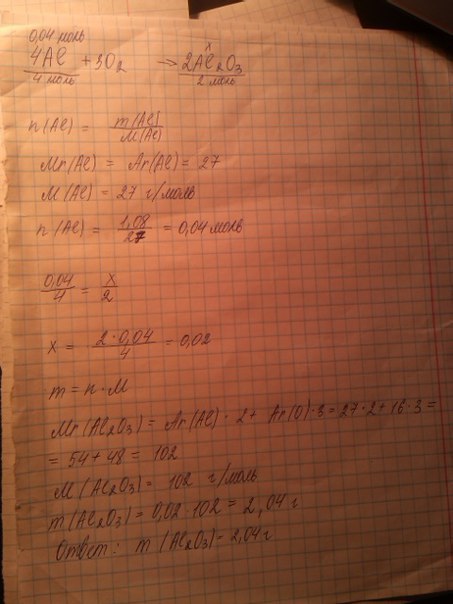 0,04 моль x
4Al + 3O2 → 2Al2O3
4 моль 2 моль
n(Al) = m(Al)/M(Al)
Mr(Al) = Ar(Al) = 27
M(Al) = 27 г/моль
n(Al) = 1,08/27 = 0,04 моль
0,04/4 = x/2
x = 2·0,04/4 = 0,02
m = n·M
Mr(Al2O3) = Ar(Al)·2 + Ar(O)·3 = 27·2 + 16·3 =
= 54 + 48 = 102
M(Al2O3) = 102 г/моль
m(Al2O3) = 0,02·102 = 2,04 г
Ответ: m(Al2O3) = 2,04 г